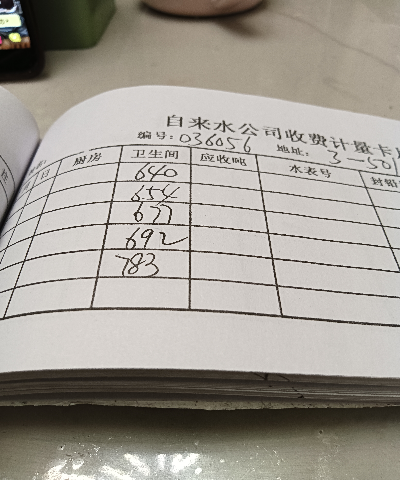 自来水公司收费计量卡
编号: 036056 地址: 3-501
日 厨房 卫生间 应收吨 水表号 封铅
640
654
677
692
783